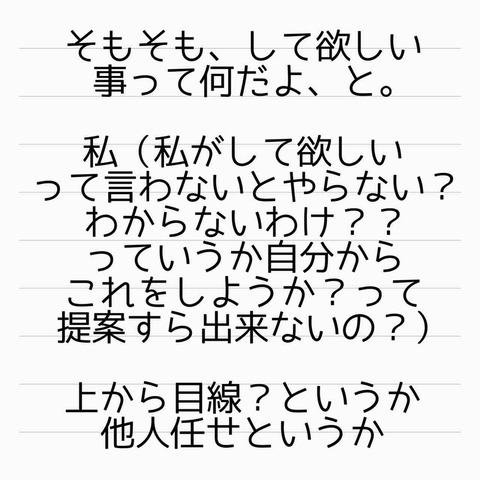 そもそも、して欲しい
事って何だよ、と。
私（私がして欲しい
って言わないとやらない？
わからないわけ？？
っていうか自分から
これをしようか？って
提案すら出来ないの？）
上から目線？というか
他人任せというか